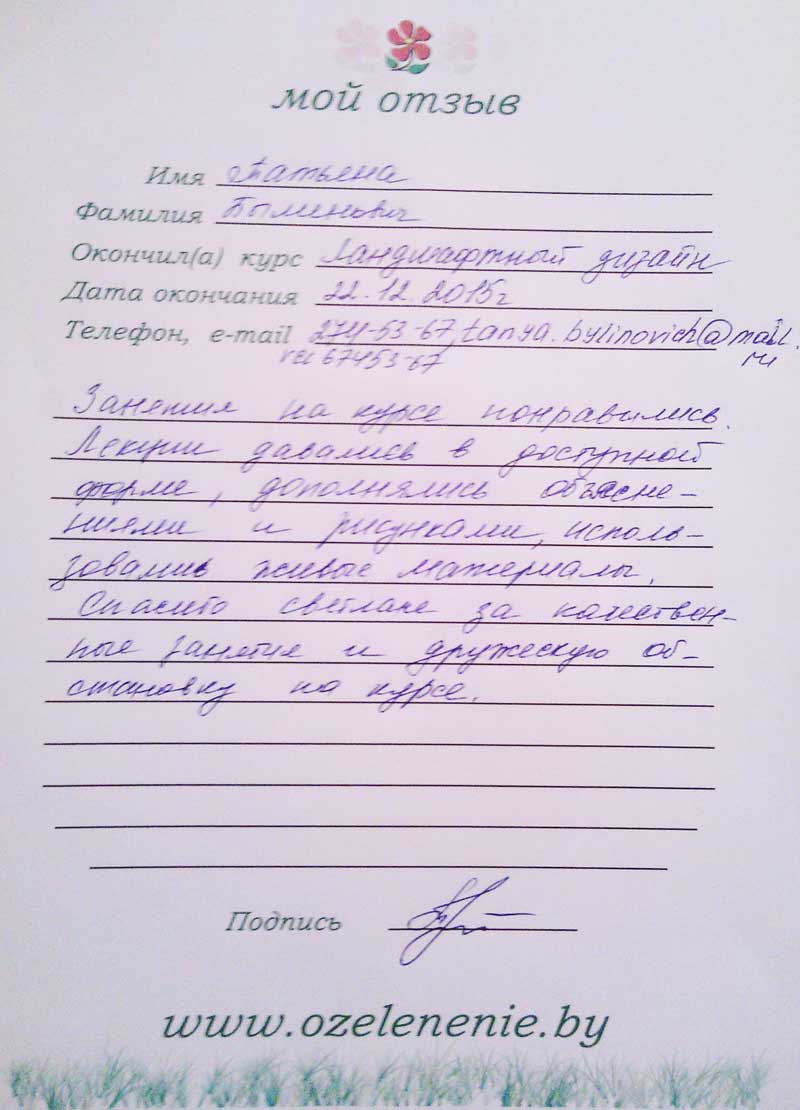 мой отзыв
Имя Татьяна
Фамилия Былинович
Окончил(а) курс Ландшафтный дизайн
Дата окончания 22.12.2015г
Телефон, e-mail 274-53-67, tanya.bylinovich@mail.
ru
vel 67453-67
Занятия на курсе понравились.
Лекции давались в доступной
форме, дополнялись объясне-
ниями и рисунками, исполь-
зовались живые материалы.
Спасибо Светлане за качествен-
ные занятия и дружескую об-
становку на курсе.
Подпись
www.ozelenenie.by